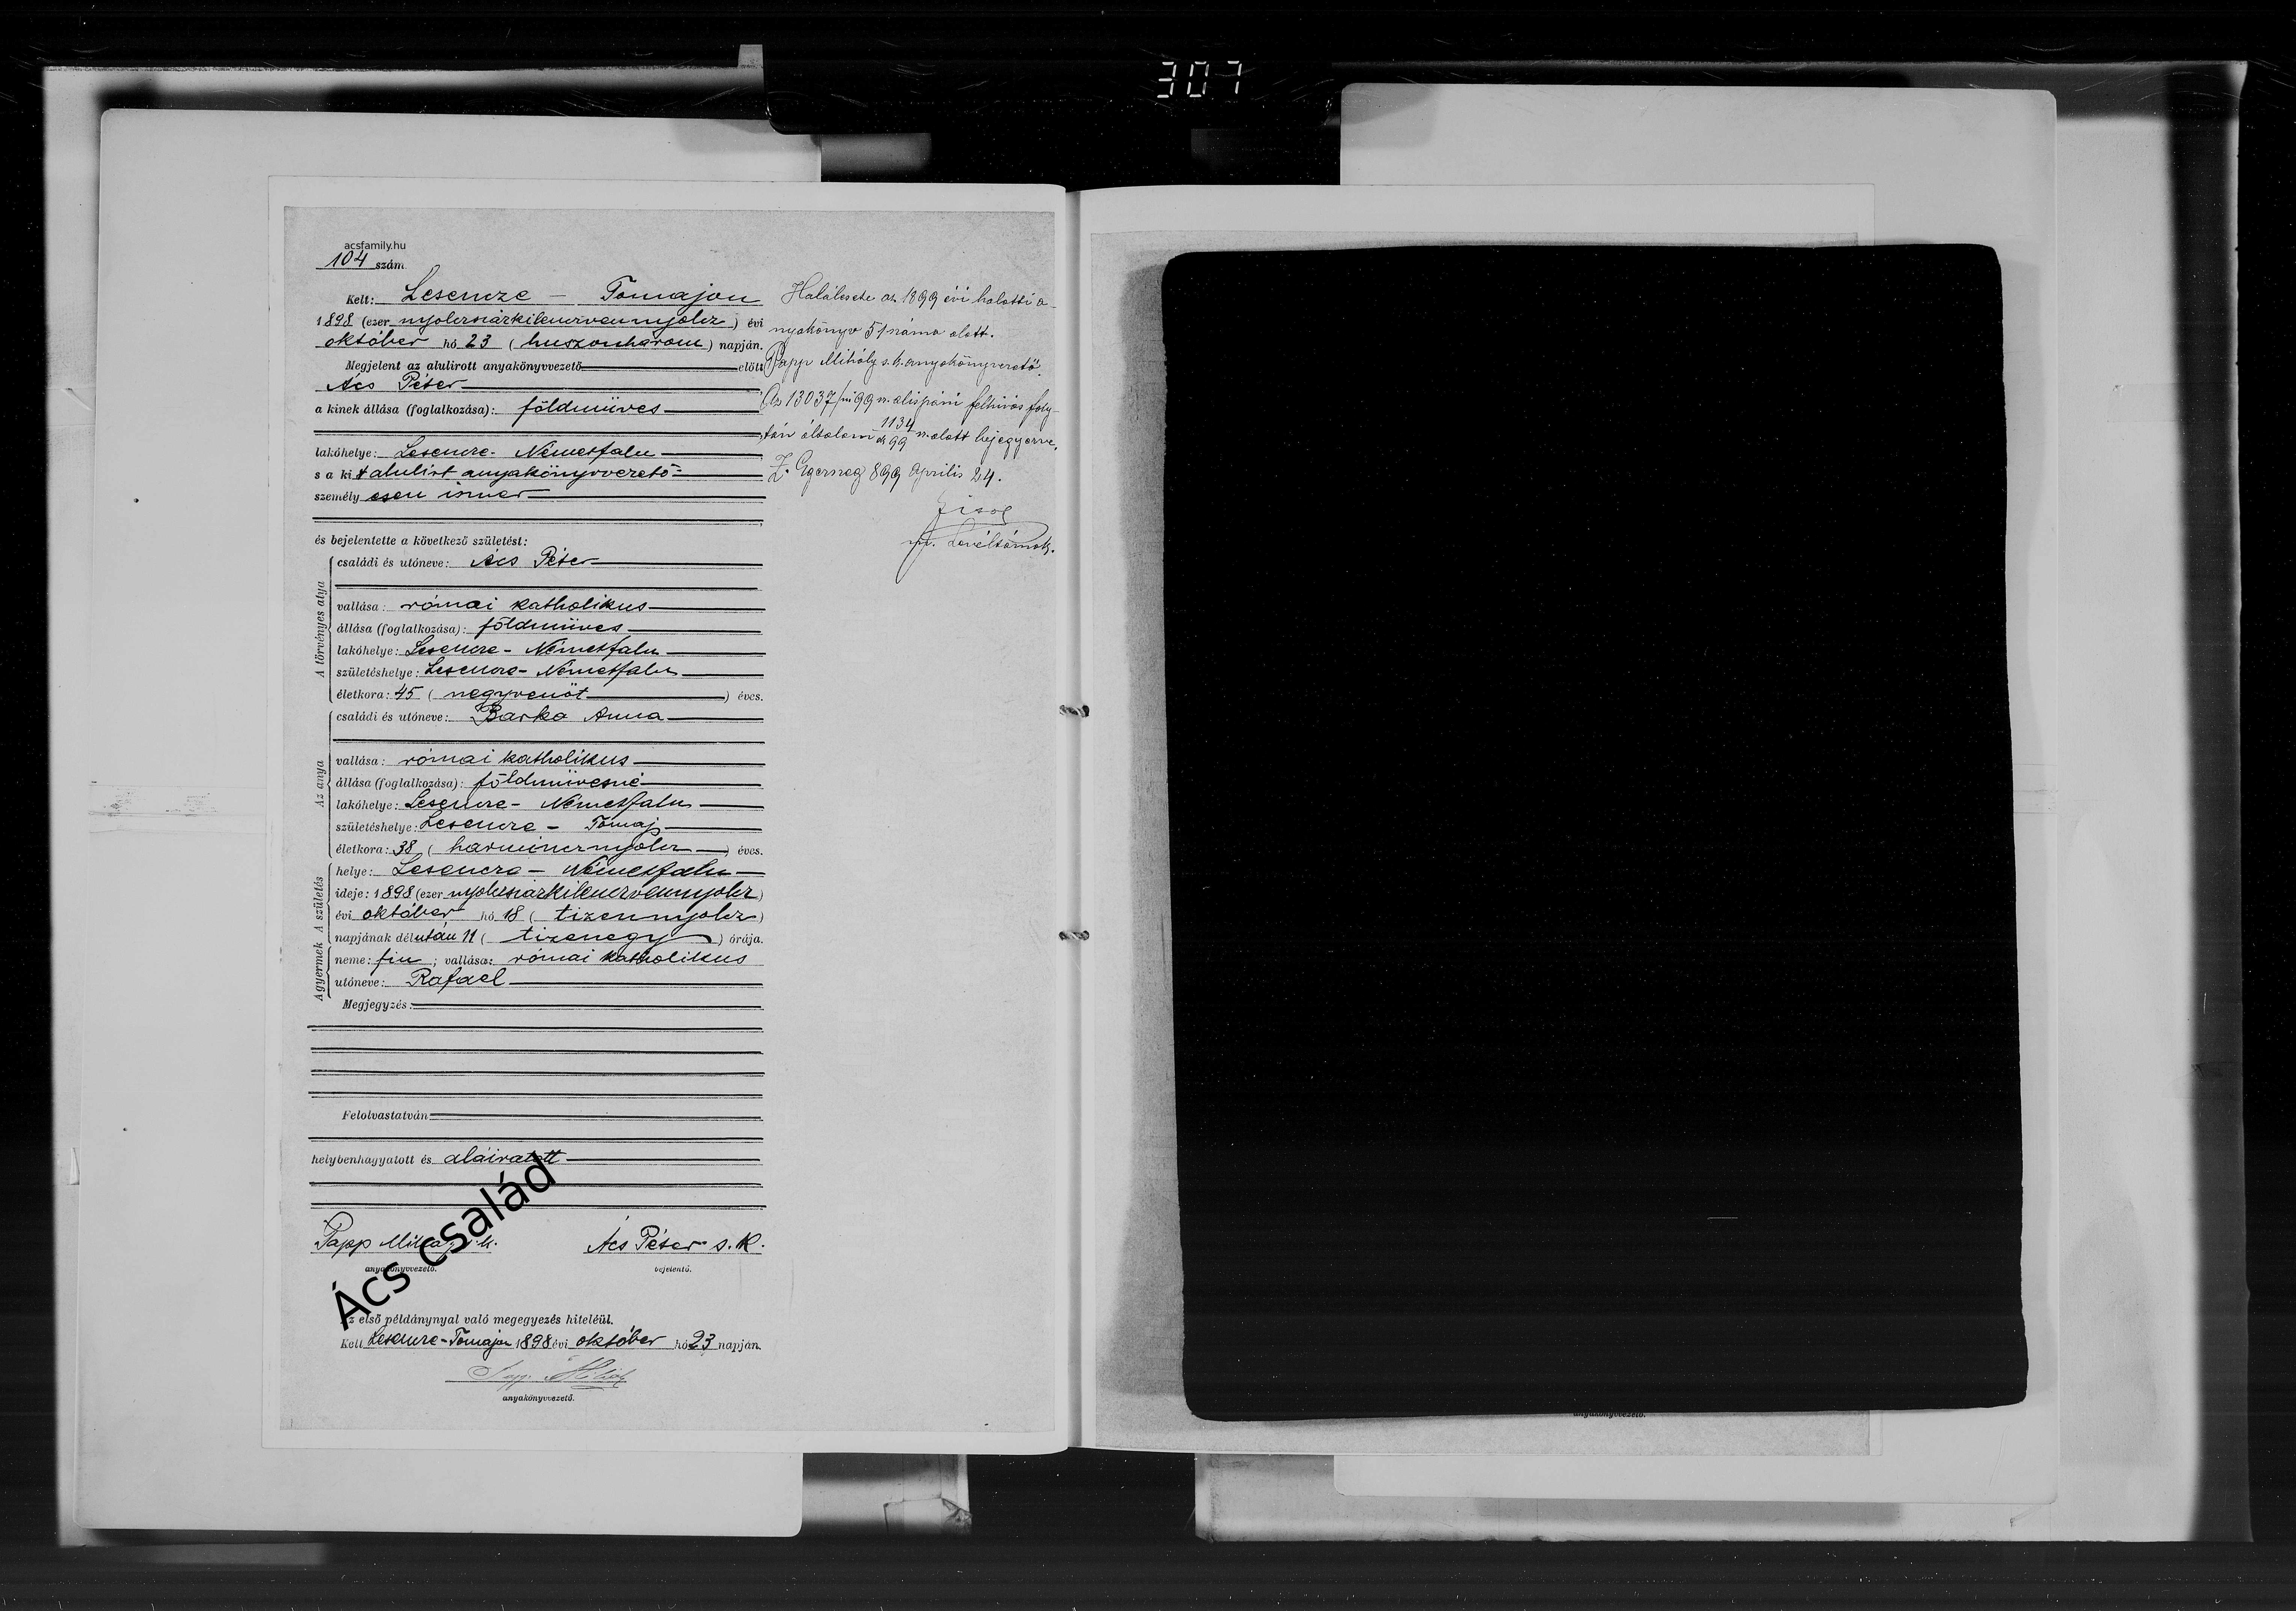 307
acsfamily.hu
104 szám
Kelt: Lesencze - Tomajon
1898 (ezer nyolczszázkilenczvennyolcz) évi
október hó 23 (huszonhárom) napján.
Megjelent az alulirott anyakönyvvezető előtt
Ács Péter
a kinek állása (foglalkozása): földmüves
lakóhelye: Lesencze- Németfalu
s a kit alulirt anyakönyvvezető
személyesen ismer
és bejelentette a következő születést:
A törvényes atya
családi és utóneve: Ács Péter
vallása: római katholikus
állása (foglalkozása): földmüves
lakóhelye: Lesencze - Németfalu
születéshelye: Lesencze- Németfalu
életkora: 45 (negyvenöt) éves.
Az anya
családi és utóneve: Barka Anna
vallása: római katholikus
állása (foglalkozása): földmüvesné
lakóhelye: Lesencze- Németfalu
születéshelye: Lesencze - Tomaj
életkora: 38 (harmincznyolcz) éves.
A születés
helye: Lesencze - Németfalu
ideje: 1898 (ezer nyolczszázkilenczvennyolcz)
évi október hó 18 (tizennyolcz)
napjának délután 11 (tizenegy) órája.
A gyermek
neme: fiu; vallása: római katholikus
utóneve: Rafael
Megjegyzés:
Felolvastatván
helybenhagyatott és aláiratott
Papp Mihály s.k. Ács Péter s. k.
anyakönyvvezető. bejelentő.
Az első példánynyal való megegyezés hiteléül.
Kelt Lesencze-Tomajon 1898 évi október hó 23 napján.
Papp Mihály
anyakönyvvezető.
Ács család
Halálesete az 1899 évi halotti a-
nyakönyv 51 száma alatt.
Papp Mihály s.k. anyakönyvvezető.
Az 13037/ni 99 sz. alispáni felhivás foly-
tán általam 1134 / 99 sz. alatt bejegyezve.
Z. Egerszeg 899 április 24.
levéltárnok.
anyakönyvvezető.